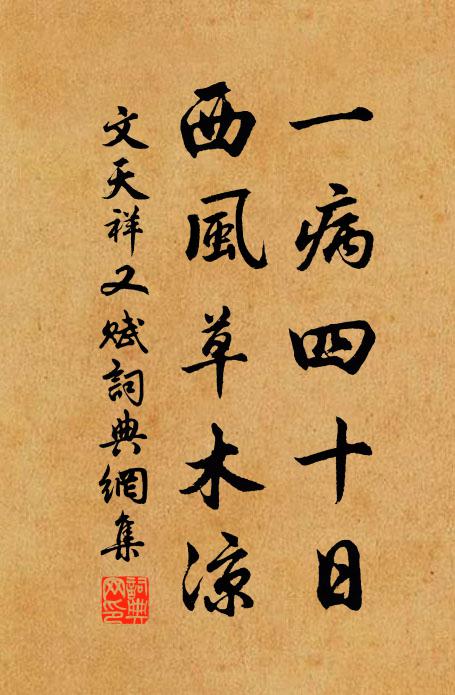 一病四十日
西風草木涼
文天祥又賦詞典網集
詞典網印